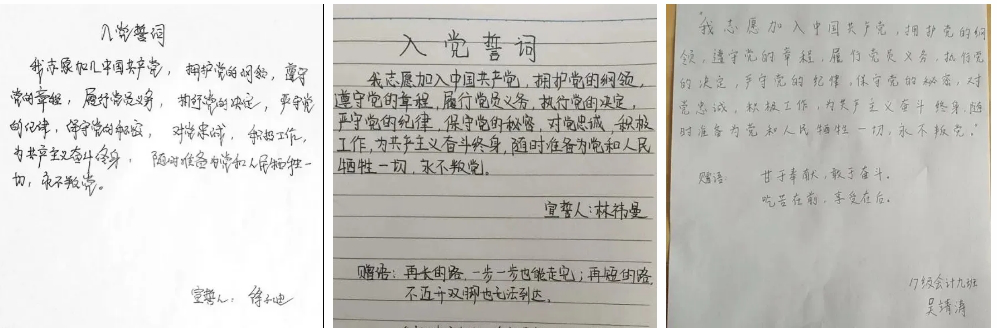 入党誓词
我志愿加入中国共产党，拥护党的纲领，遵守
党的章程，履行党员义务，执行党的决定，严守党
的纪律，保守党的秘密，对党忠诚，积极工作，
为共产主义奋斗终身，随时准备为党和人民牺牲一
切，永不叛党。
宣誓人：徐
入党誓词
我志愿加入中国共产党，拥护党的纲领，
遵守党的章程，履行党员义务，执行党的决定，
严守党的纪律，保守党的秘密，对党忠诚，积极
工作，为共产主义奋斗终身，随时准备为党和人民
牺牲一切，永不叛党。
宣誓人：林祎曼
赠语：再长的路，一步一步也能走完；再短的路
不迈开双脚也无法到达。
“我志愿加入中国共产党，拥护党的纲
领，遵守党的章程，履行党员义务，执行党
的决定，严守党的纪律，保守党的秘密，对
党忠诚，积极工作，为共产主义奋斗终身，随
时准备为党和人民牺牲一切，永不叛党。”
赠语：甘于奉献，敢于奋斗。
吃苦在前，享受在后。
17级会计九班
吴靖涛